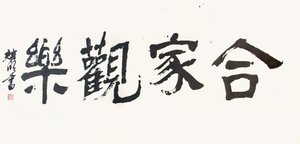 合家觀樂